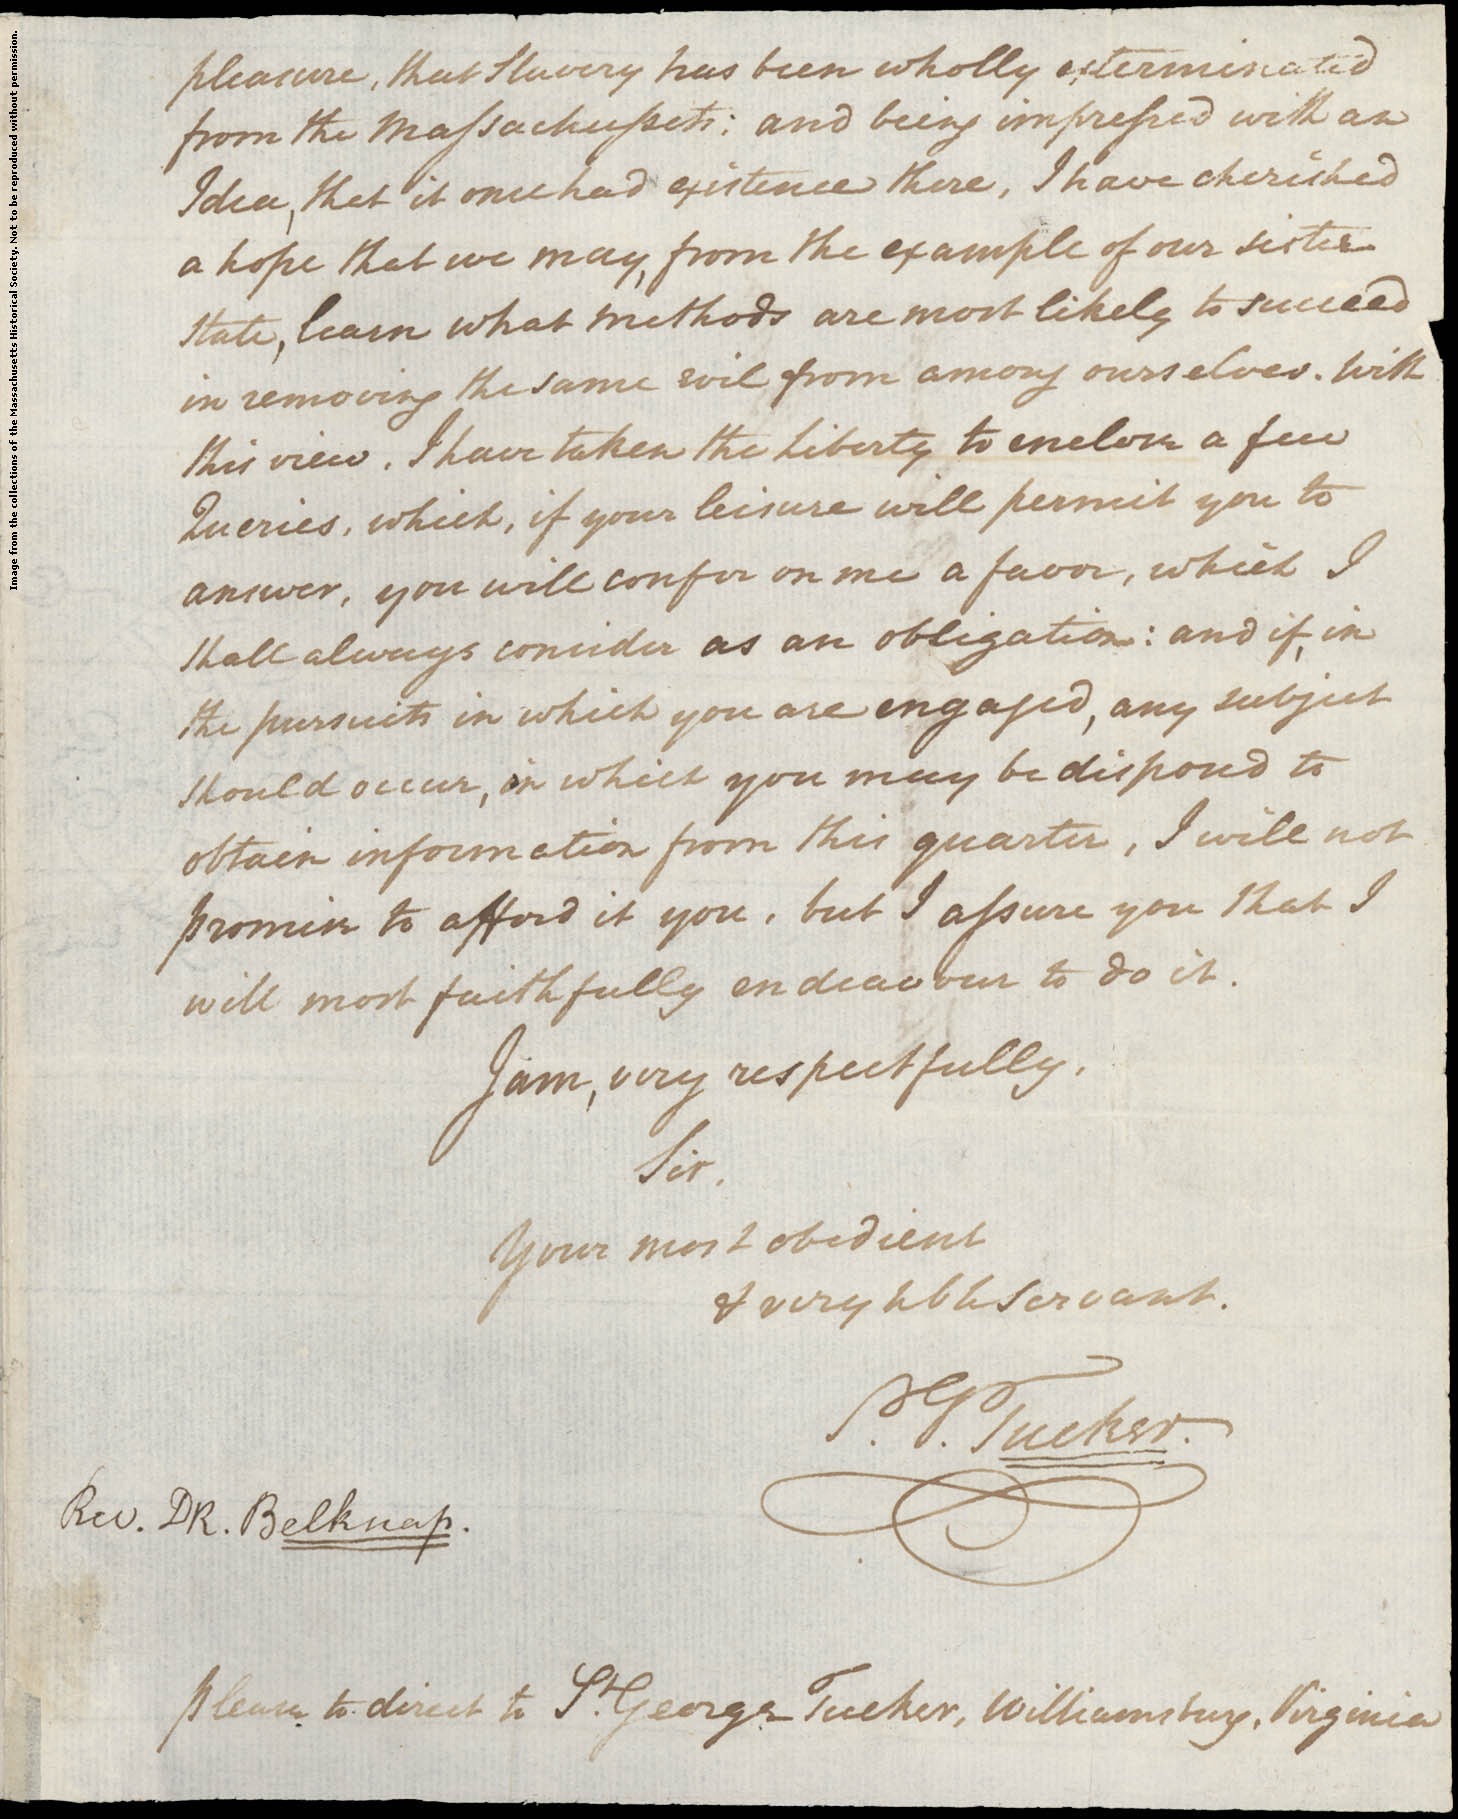 pleasure, that Slavery has been wholly exterminated
from the Massachussets; and being impressed with an
Idea, that it once had existence there, I have cherished
a hope that we may, from the example of our sister
state, learn what methods are most likely to succeed
in removing the same evil from among ourselves. With
this view, I have taken the Liberty to enclose a few
Queries, which, if your leisure will permit you to
answer, you will confer on me a favor, which I
shall always consider as an obligation: and if, in
the pursuits in which you are engaged, any subject
should occur, in which you may be disposed to
obtain information from this quarter, I will not
promise to afford it you, but I assure you that I
will most faithfully endeavour to do it.
I am, very respectfully,
Sir,
Your most obedient
& very hble servant.
S. G. Tucker.
Rev. DR. Belknap.
please to direct to St. George Tucker, Williamsburg, Virginia
Image from the collections of the Massachusetts Historical Society. Not to be reproduced without permission.